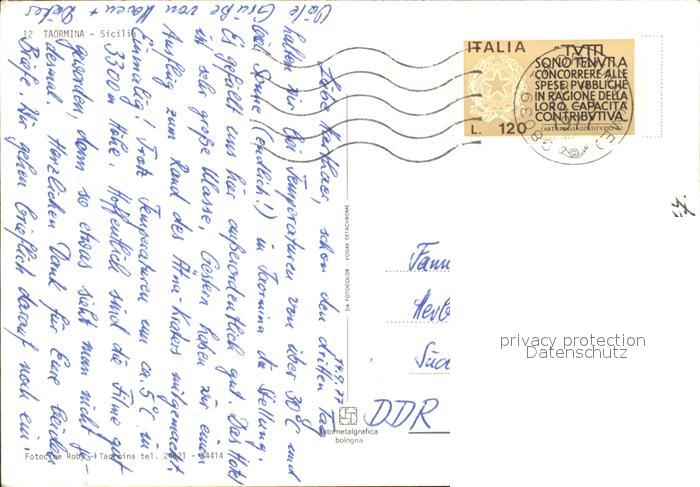 12 TAORMINA - Sicilia
ITALIA
TUTTI
SONO TENUTI A
CONCORRERE ALLE
SPESE PUBBLICHE
IN RAGIONE DELLA
LORO CAPACITÀ
CONTRIBUTIVA
(ART. 53 DELLA COSTITUZIONE)
L. 120
14.9.77
schon den dritten Tag
haben wir bei Temperaturen von über 30°C und
viel Sonne (endlich!) in Taormina die Stellung.
Es gefällt uns hier außerordentlich gut. Das Hotel
ist sehr große Klasse. Gestern haben wir einen
Ausflug zum Rand des Ätna-Kraters mitgemacht.
Einmalig! Trotz Temperaturen um ca. 5°C in
3300 m Höhe. Hoffentlich sind die Filme gut
geworden, denn so etwas sieht man nicht je-
desmal. Herzlichen Dank für Eure beiden
Briefe. Wir gehen brieflich darauf noch ein.
Viele Grüße von
DA FOTOCOLOR KODAK EKTACHROME
DDR
fotometalgrafica
bologna
privacy protection
Datenschutz